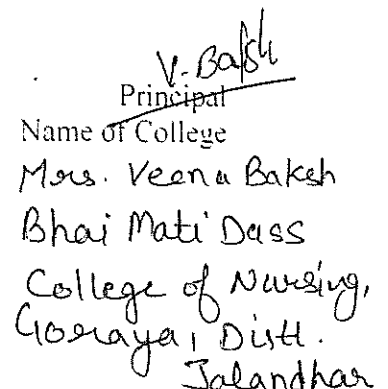 V. Baksh
Principal
Name of College
Mrs. Veena Baksh
Bhai Mati Dass
College of Nursing,
Goraya, Distt.
Jalandhar